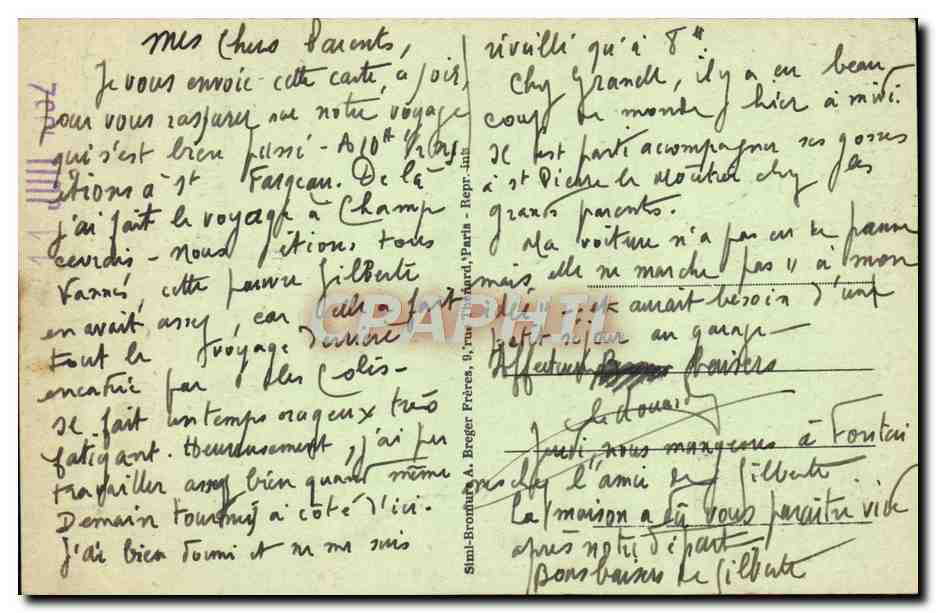 Mes Chers Parents,
Je vous envoie cette carte, a soir,
pour vous rassurer sur notre voyage
qui s'est bien passé - A 10H
étions à St Fargeau. De là
j'ai fait le voyage à Champ
cevrais - Nous étions tous
vannés, cette pauvre Gilberte
en avait assez, car elle a fait
tout le voyage derrière
encatié par les Colis -
Il fait un temps orageux très
fatigant. Heureusement, j'ai pu
travailler assez bien quand même
Demain tournée à côté d'ici.
J'ai bien dormi et ne me suis
réveillé qu'à 8H.
Chez Grandt, il y a eu beau
coup de monde hier à midi.
Il est parti accompagner ses gosses
à St Pierre le Moutier chez les
grands parents.
Ma voiture n'a pas eu de panne
mais elle ne marche pas "à mon
idée" ... et aurait besoin d'un
petit séjour au garage -
Affectueux Baisers
Ledouard
Jeudi, nous mangerons à Fontai
nes chez l'amie de Gilberte
La maison a dû vous paraître vide
après notre départ
Bons baisers de Gilberte
Simi-Bromure A. Breger Frères, 9, rue Thénard, Paris - Repr. Int.
CPAPHIL